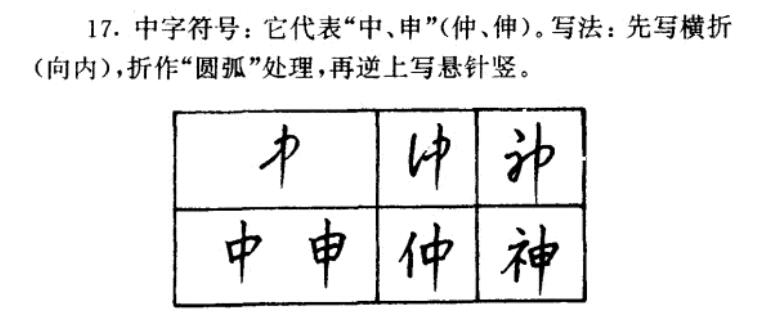 17. 中字符号：它代表“中、申”（仲、伸）。写法：先写横折
（向内），折作“圆弧”处理，再逆上写悬针竖。
中 申 仲 神